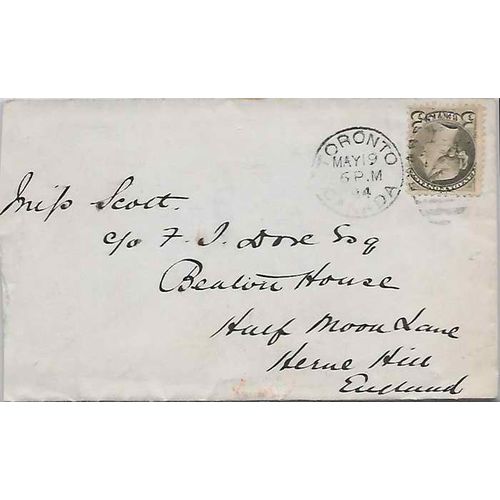 TORONTO
MAY 19
6 P.M
94
CANADA
Miss Scott.
c/o F. J. Dore Esq
House
Half Moon Lane
Herne Hill
England